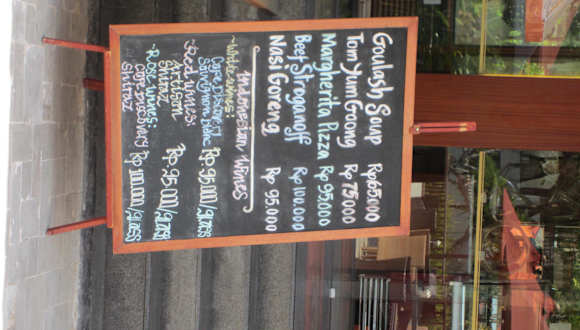 Goulash Soup Rp 65.000
Tom Yum Goong Rp 75.000
Margherita Pizza Rp 95.000
Beef Stroganoff Rp 100.000
Nasi Goreng Rp 95.000
Indonesian Wines
~White wines:
Cape Discovery
Sauvignon Blanc Rp 95.000/glass
~Red wines:
Artisan
Shiraz Rp 95.000/glass
~Rose wines:
Cape Discovery
Shiraz Rp 100.000/glass